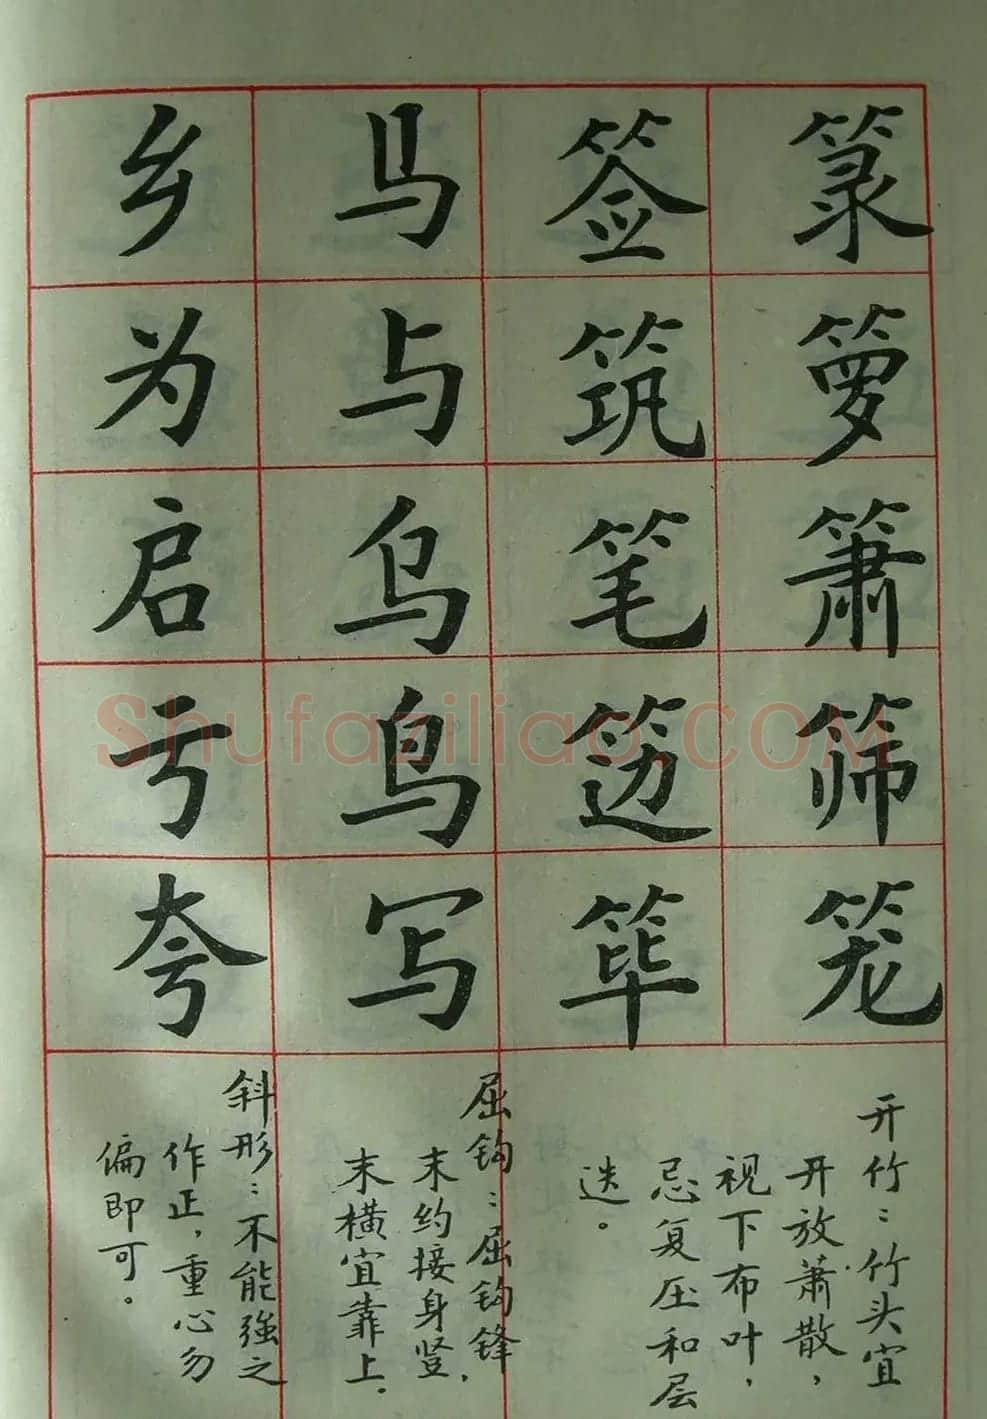 箓箩箫筛笼
签筑笔笾筚
马与乌鸟写
乡为启亏夸
开竹：竹头宜
开放萧散，
视下布叶，
忌复压和层
迭。
屈钩：屈钩锋
末约接身竖，
末横宜靠上.
斜形：不能強之
作正，重心勿
偏即可。
Shufaziliao.COM